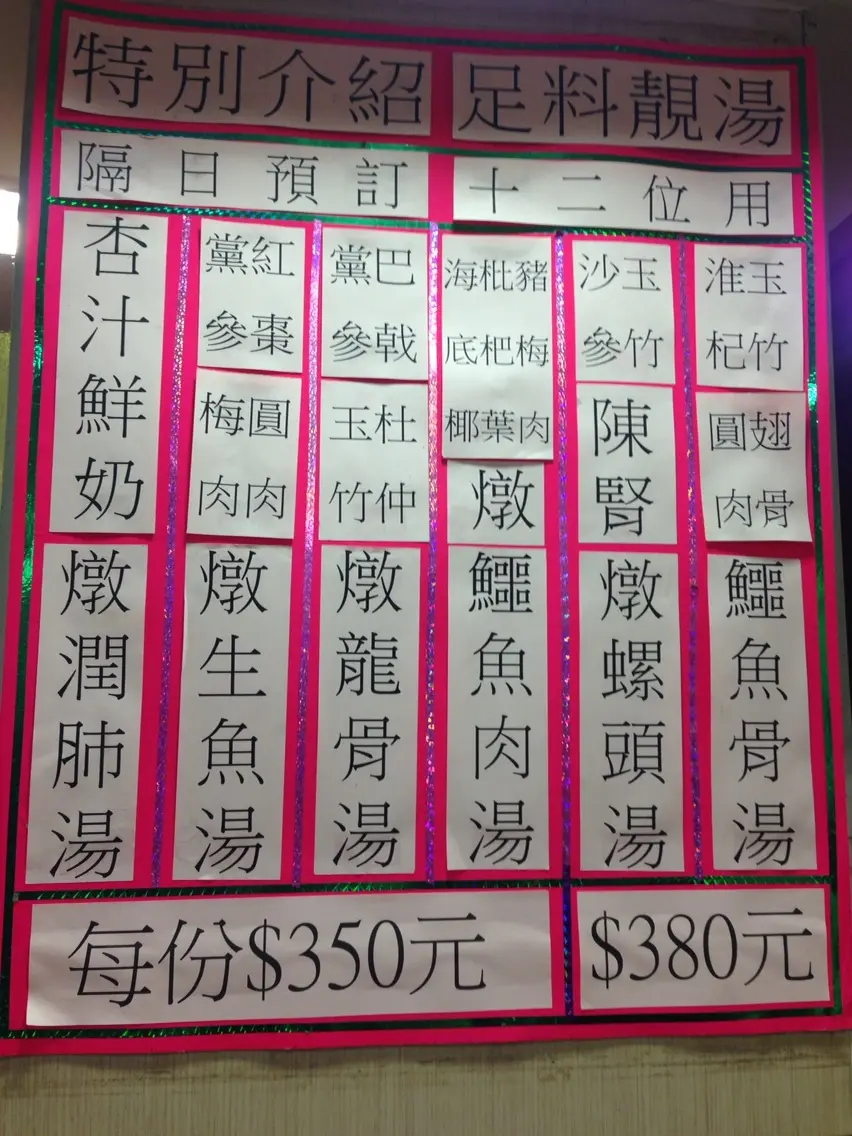 特別介紹 足料靚湯
隔日預訂 十二位用
玉竹
淮杞
翅骨
圓肉
鱷魚骨湯
玉竹
沙參
陳腎
燉螺頭湯
豬梅肉
枇杷葉
海底椰
燉
鱷魚肉湯
巴戟
黨參
杜仲
玉竹
燉龍骨湯
紅棗
黨參
圓肉
梅肉
燉生魚湯
杏汁鮮奶
燉潤肺湯
每份$350元
$380元